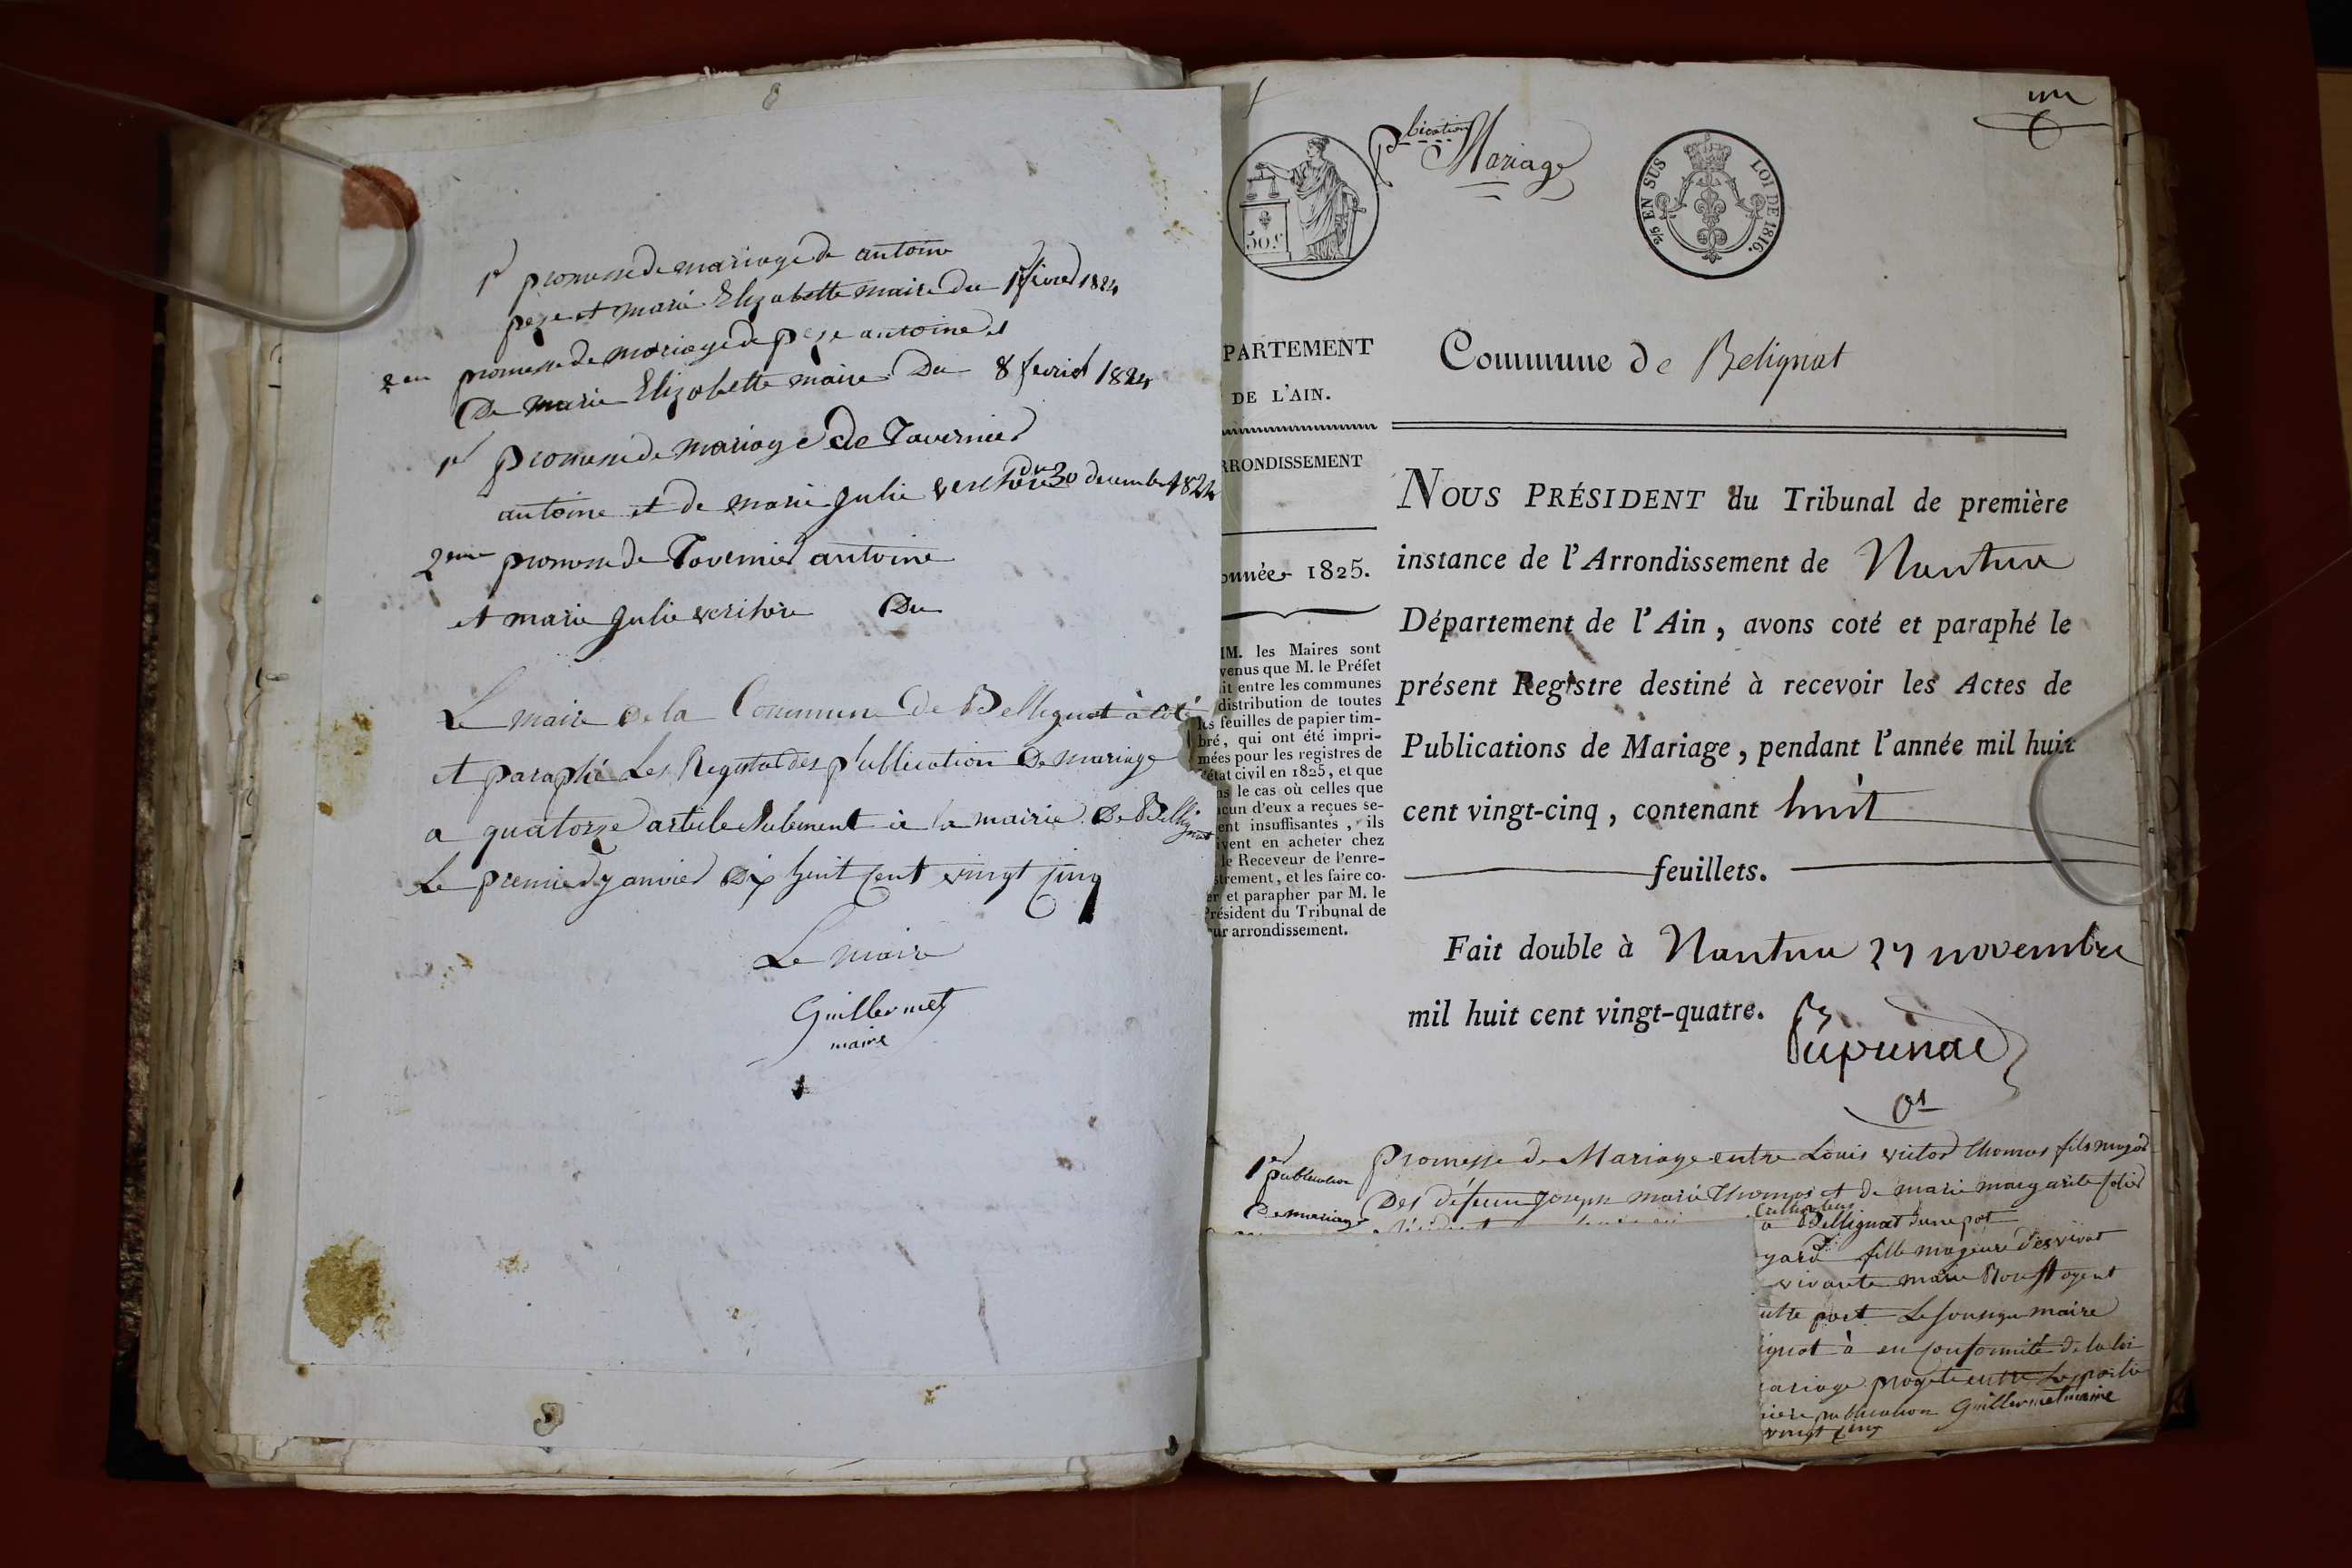 1er promesse de mariage de antoine
peze et marie Elizabette maire du 1er fevrier 1824
2em promesse de mariage de peze antoine et
De marie Elizabette maire Du 8 fevrier 1824
1er promesse de mariage de Tavernier
antoine et de marie Julie verchere du 30 decembre 1824
2eme promesse de Tavernier antoine
et marie Julie verchere Du
Le maire de la Commune De Bellignat à coté
et paraphé Les Registre des publication De mariage
a quatorze article sulement à la mairie De Bellignat
Le premier janvier dix huit cent vingt cinq
Le maire
Guillermet
maire
Pblication
Mariage
un
50 c
2/5 EN SUS
LOI DE 1816.
PARTEMENT
DE L'AIN.
RRONDISSEMENT
nnée 1825.
M. les Maires sont
venus que M. le Préfet
it entre les communes
distribution de toutes
les feuilles de papier tim-
bré, qui ont été impri-
mées pour les registres de
l'état civil en 1825, et que
ns le cas où celles que
acun d'eux a reçues se-
ent insuffisantes, ils
ivent en acheter chez
le Receveur de l'enre-
strement, et les faire co-
er et parapher par M. le
Président du Tribunal de
ur arrondissement.
Commune de Belignat
NOUS PRÉSIDENT du Tribunal de première
instance de l'Arrondissement de Nantua
Département de l'Ain, avons coté et paraphé le
présent Registre destiné à recevoir les Actes de
Publications de Mariage, pendant l'année mil huit
cent vingt-cinq, contenant huit
feuillets.
Fait double à Nantua 27 novembre
mil huit cent vingt-quatre.
1er publication
De mariage
Promesse de Mariage entre Louis victor thomas fils majeur
Des défun joseph marie Thomas et de marie margarite
cultivateur
a Bellignat dune pat
yard fille majeure des vivat
vivante marie
utre part Le sousigné maire
ignat à en conformité de la loi
ariage progeté entre Les partie
iere publication Guillermet maire
vingt cinq